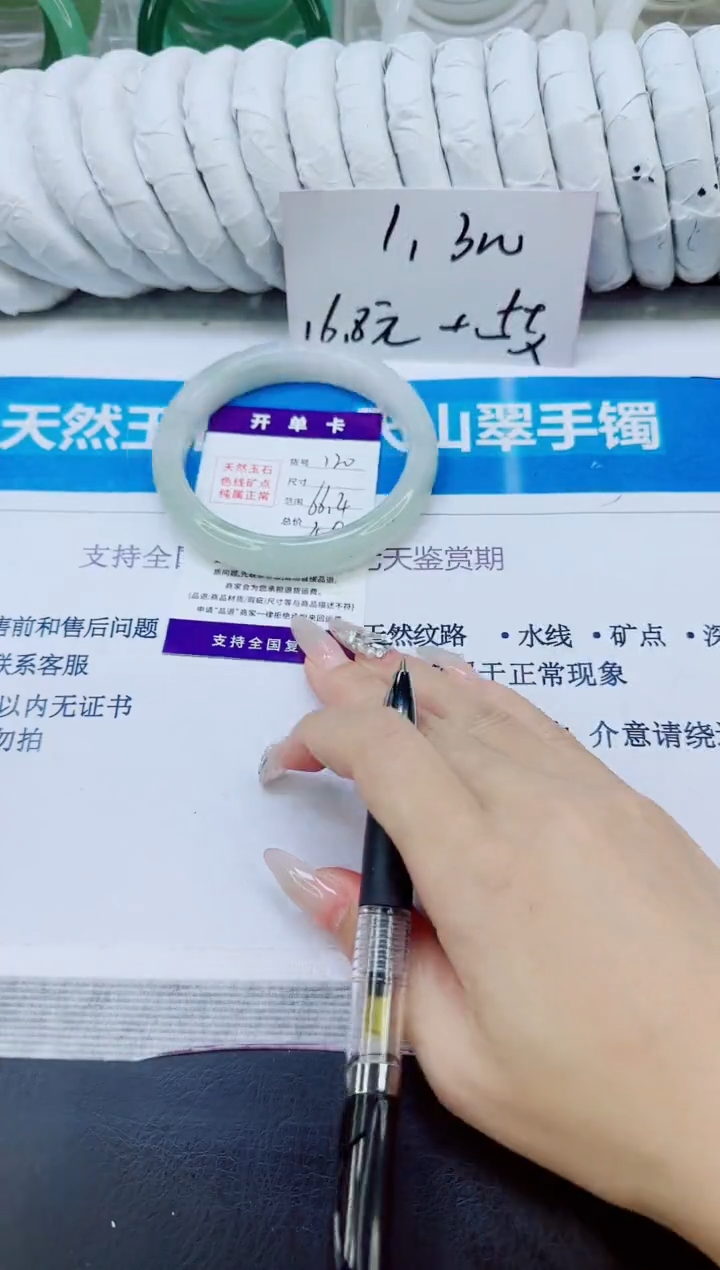 1,3w
16.8元+
天然玉
山翠手镯
开单卡
天然玉石
色线矿点
纯属正常
货号 120
尺寸
范围 66.4
总价
支持全
七天鉴赏期
商家会为您承担退货运费。
(品退:商品材质/瑕疵/尺寸等与商品描述不符)
支持全国复
售前和售后问题
联系客服
以内无证书
勿拍
天然纹路 •水线 •矿点 •深
于正常现象
介意请绕